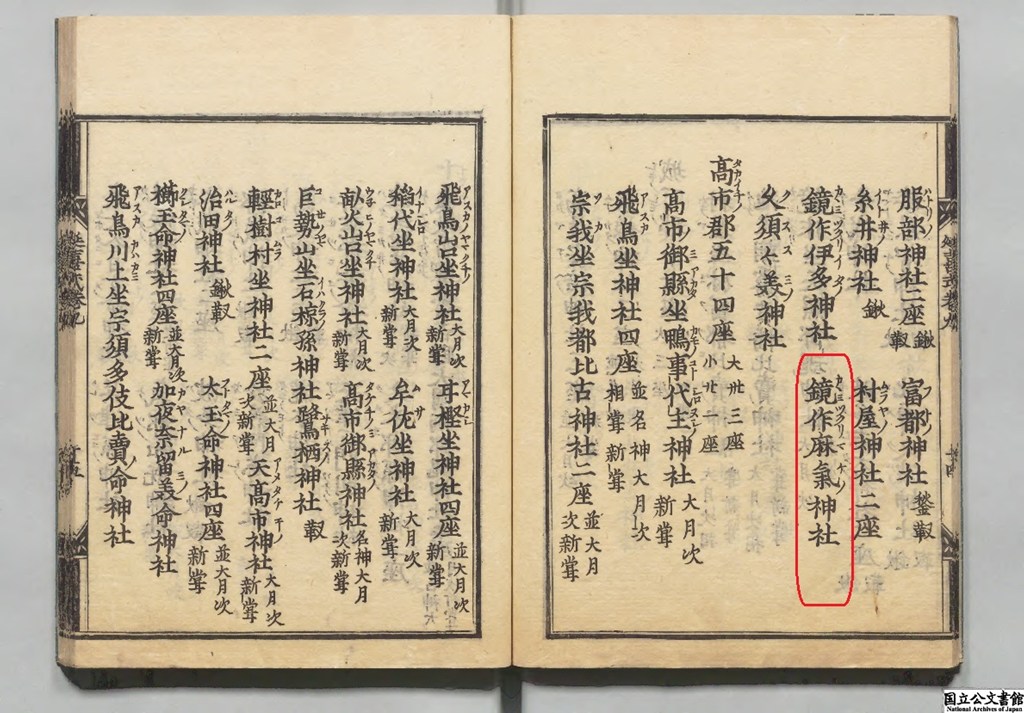 服部神社二座 鍬靫 富都神社 鍬靫
糸井神社 鍬 村屋神社二座
鏡作伊多神社 鏡作麻氣神社
久須々美神社
高市郡五十四座 大卅三座 小廿一座
高市御縣坐鴨事代主神社 大月次新甞
飛鳥坐神社四座 並名神大月次相甞新甞
宗我坐宗我都比古神社二座 並大月次新甞
飛鳥山口坐神社 大月次新甞 耳樫坐神社四座 並大月次新甞
稲代坐神社 大月次新甞 牟佐坐神社 大月次新甞
畝火山口坐神社 大月次新甞 高市御縣神社 名神大月次新甞
巨勢山坐石椋孫神社 鷺栖神社 靫
輕樹村坐神社二座 並大月次新甞 天高市神社 大月次新甞
治田神社 鍬靫 太玉命神社四座 並大月次新甞
櫛玉命神社四座 並大月次新甞 加夜奈留美命神社
飛鳥川上坐宇須多伎比賣命神社
延喜式卷九
国立公文書館
National Archives of Japan